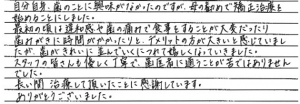 自分自身、歯のことに興味がなかったのですが、母の勧めで矯正治療を
始めることにしました。
最初の頃は違和感や歯の痛みで食事をすることが大変だったり
歯みがきに時間がかかったりと、デメリットの方が大きいと感じていまし
たが、歯がきれいに並んでいくにつれて嬉しくなっていきました。
スタッフの皆さんも優しく丁寧で、歯医者に通うことが苦ではありません
でした。
長い間 治療して頂いたことに感謝しています。
ありがとうございました。